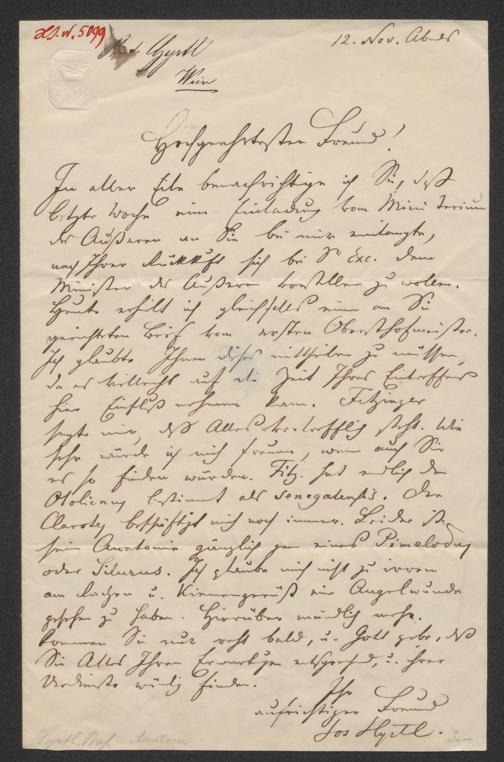 HS.N. 5099
12. Nov. Abends
Hyrtl
Wien
Hochgeehrtester Freund!
In aller Eile benachrichtige ich Sie, daß
letzte Woche eine Einladung vom Ministerium
des Äußeren an Sie bei mir einlangte,
nach Ihrer Rückkunft sich bei Sr Exc. dem
Minister des Äußern vorstellen zu wollen.
Heute erhielt ich gleichfalls einen an Sie
gerichteten Brief vom ersten Obersthofmeister.
Ich glaubte Ihnen dieses mittheilen zu müssen,
da es vielleicht auf die Zeit Ihres Eintreffens
hier Einfluß nehmen kann. Fitzinger
sagte mir, daß Alles vortrefflich steht. Wie
sehr würde ich mich freuen, wenn auch Sie
es so finden würden. Fitz. hat endlich den
Otolicnus bestimmt als senegalensis. Der
Clarotes beschäftigt mich noch immer. Leider ist
seine Anatomie gänzlich jene eines Pimelodus
oder Silurus. Ich glaube mich nicht zu irren
am Rachen u. Kiemengerüst eine Angelwunde
gesehen zu haben. Hierüber mündlich mehr.
Kommen Sie nur recht bald, u. Gott gebe, daß
Sie Alles Ihren Erwartungen entsprechend, u. Ihrer
Verdienste würdig finden.
Ihr
aufrichtiger Freund
Jos Hyrtl.
Hyrtl, Josef Anatom
3.-